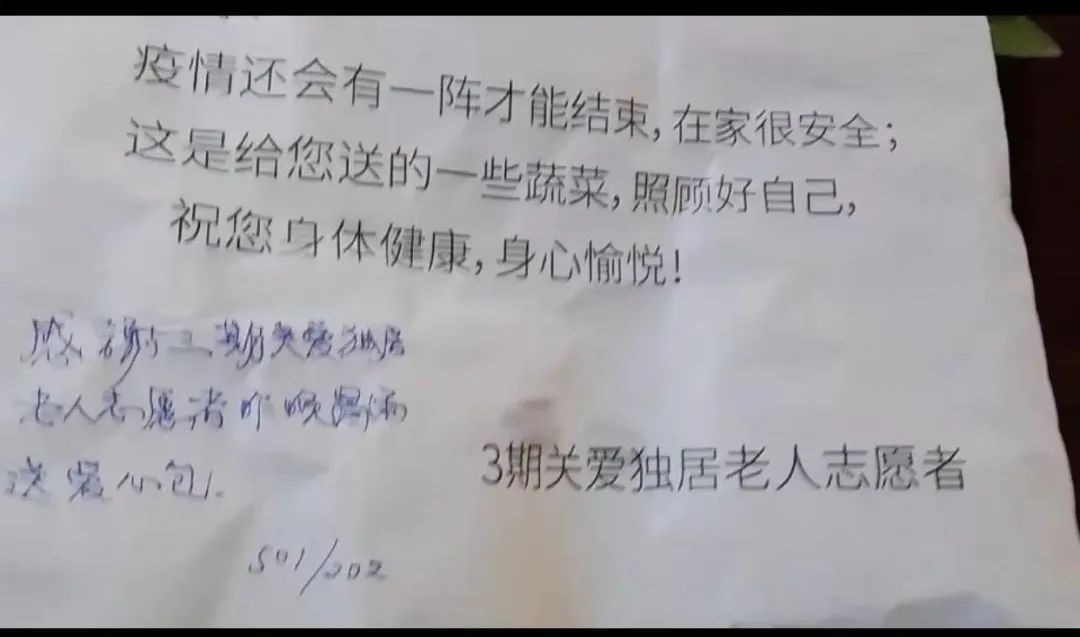 疫情还会有一阵才能结束,在家很安全;
这是给您送的一些蔬菜,照顾好自己,
祝您身体健康,身心愉悦!
感谢三期关爱独居
老人志愿者昨晚
送爱心包.
501/202
3期关爱独居老人志愿者